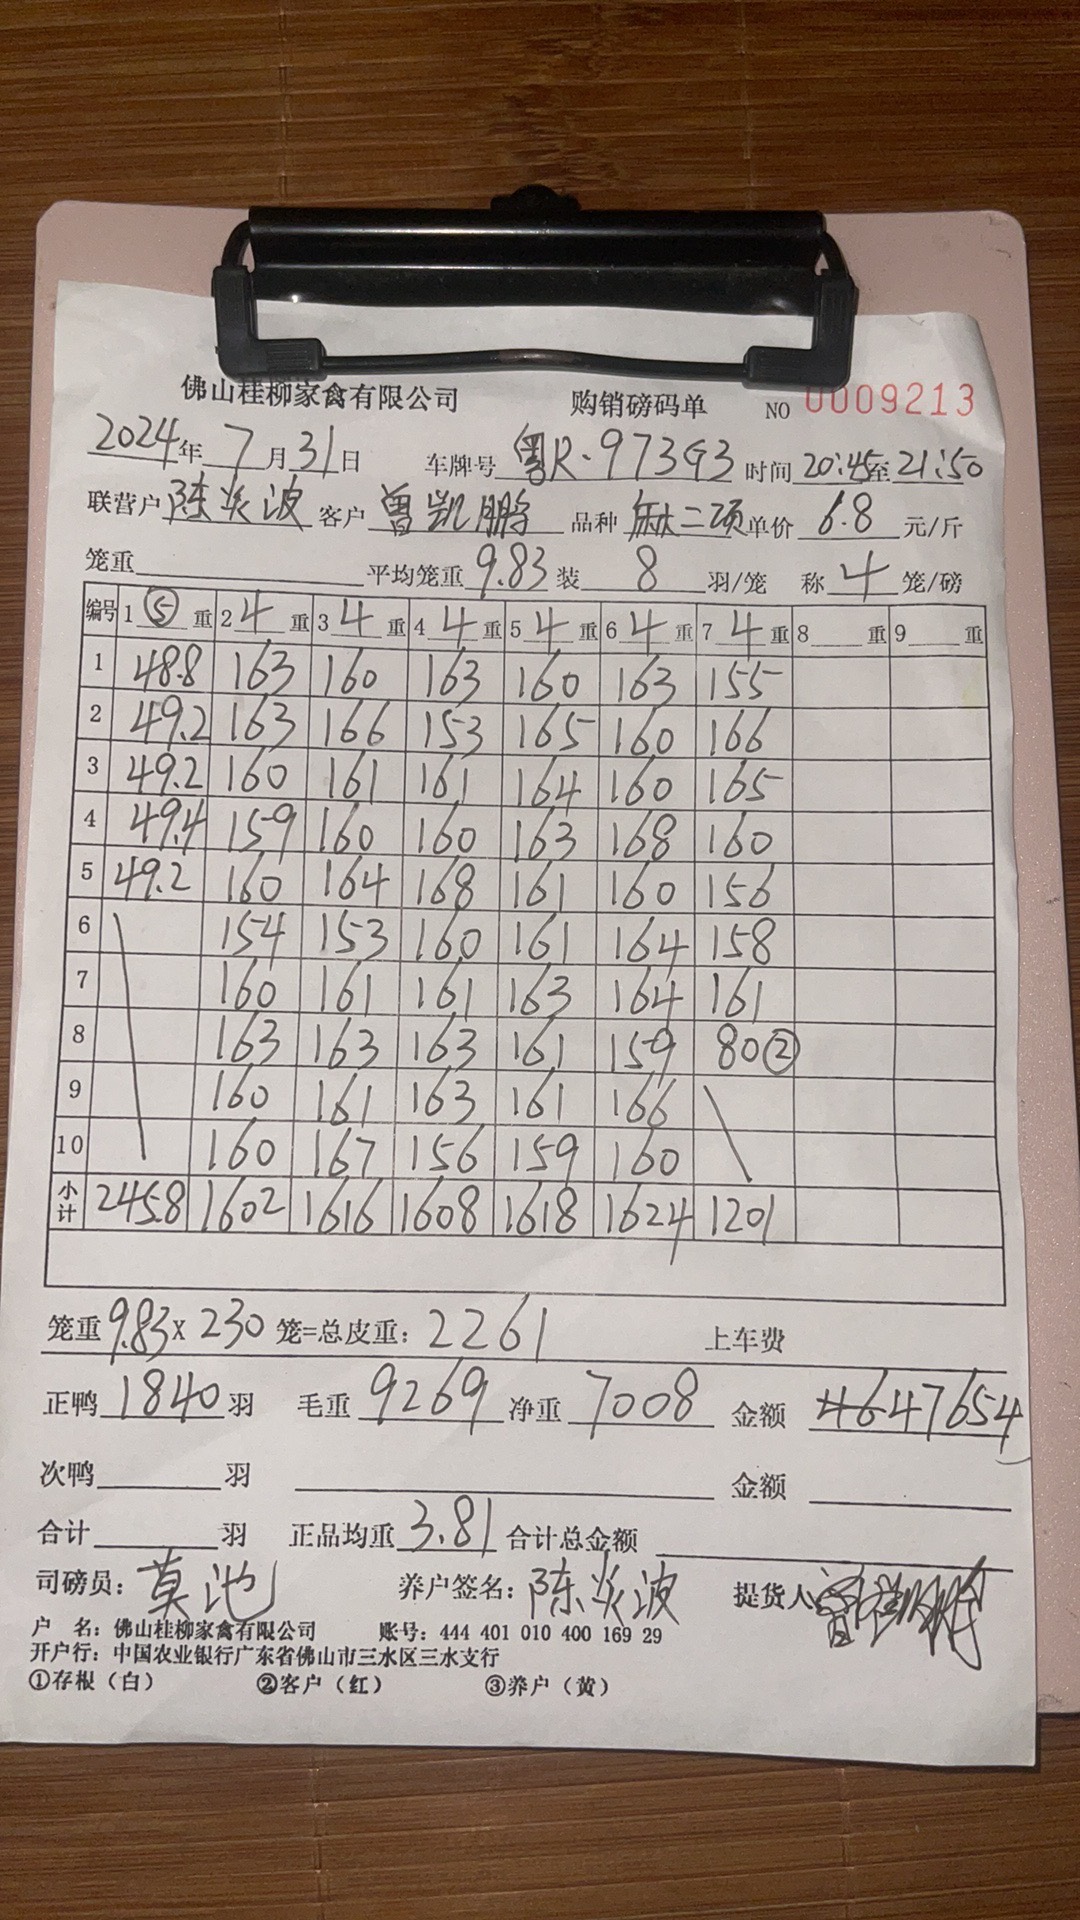 佛山桂柳家禽有限公司 购销磅码单 NO 0009213
2024年7月31日 车牌号 粤R·973G3 时间 20:45至21:50
联营户 陈炎波 客户 曾凯鹏 品种 二项 单价 6.8 元/斤
笼重 平均笼重 9.83 装 8 羽/笼 称 4 笼/磅
编号 1 ⑤ 重 2 4 重 3 4 重 4 4 重 5 4 重 6 4 重 7 4 重 8 重 9 重
1 48.8 163 160 163 160 163 155
2 49.2 163 166 153 165 160 166
3 49.2 160 161 161 164 160 165
4 49.4 159 160 160 163 168 160
5 49.2 160 164 168 161 160 156
6 154 153 160 161 164 158
7 160 161 161 163 164 161
8 163 163 163 161 159 80②
9 160 161 163 161 166
10 160 167 156 159 160
小计 245.8 1602 1616 1608 1618 1624 1201
笼重 9.83 x 230 笼=总皮重: 2261 上车费
正鸭 1840 羽 毛重 9269 净重 7008 金额 47654
次鸭 羽 金额
合计 羽 正品均重 3.81 合计总金额
司磅员: 莫池 养户签名: 陈炎波 提货人 曾凯鹏
户 名: 佛山桂柳家禽有限公司 账号: 444 401 010 400 169 29
开户行: 中国农业银行广东省佛山市三水区三水支行
①存根（白） ②客户（红） ③养户（黄）